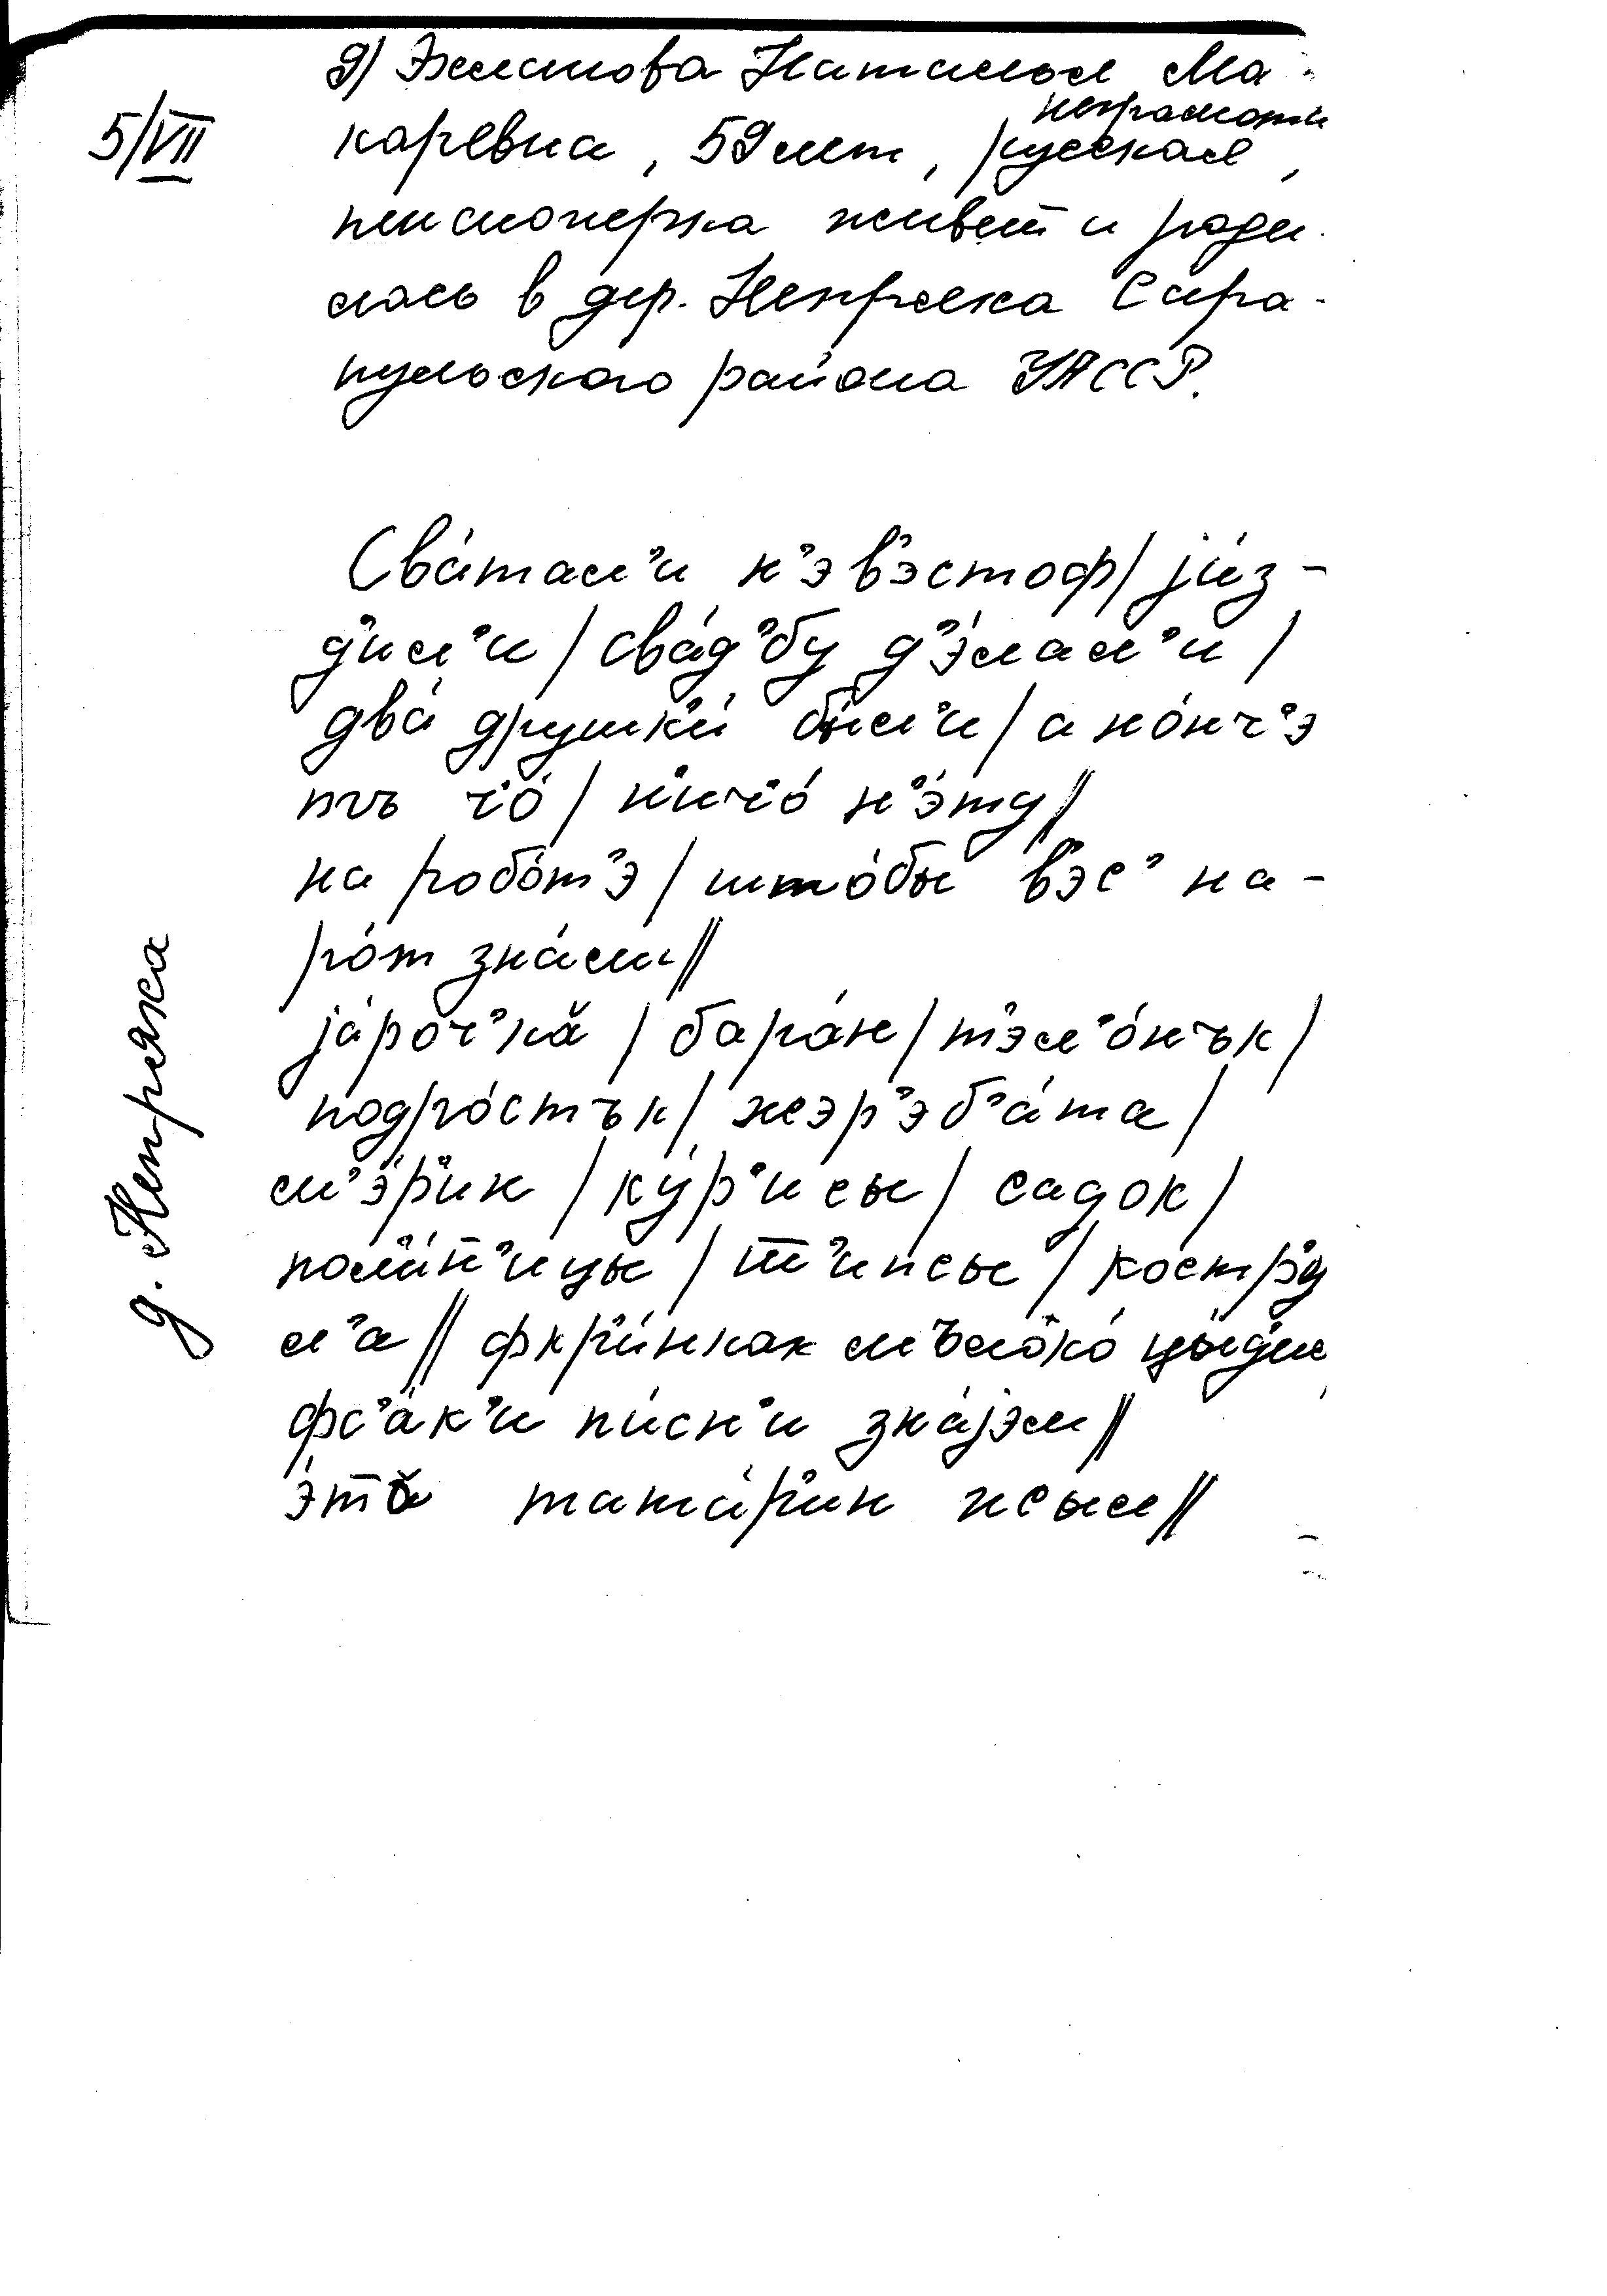 5/VII
9) Эжмакова Наталья Ма-
каревна, 59 лет, русская,
неграмотн
пенсионерка живет и роди-
лась в дер. Непряха Сара-
пульского района УАССР.
Сва́тал'и н'эв'эстоф/ jи́з-
д'ил'и / сва́д'бу д'э́лал'и /
два́ друшк'и́ бы́л'и / а но́нч'э
ч'о́ / н'ич'о́ н'э́ту//
на робо́т'э / што́бы в'эс' на-
ро́т зна́л//
jа́роч'ка / бара́н / т'эл'о́нък /
подро́стък / жэр'эб'а́та /
м'э́р'ин / ку́р'исы / садок /
пол'и́н'ицы / ти́псы / костр'у
л'а // фкр'и́нках мълоко́ цыд'ил
фс'а́к'и п'и́сн'и зна́jэм//
э́тъ тата́р'ин псы́л//
д. Непряха